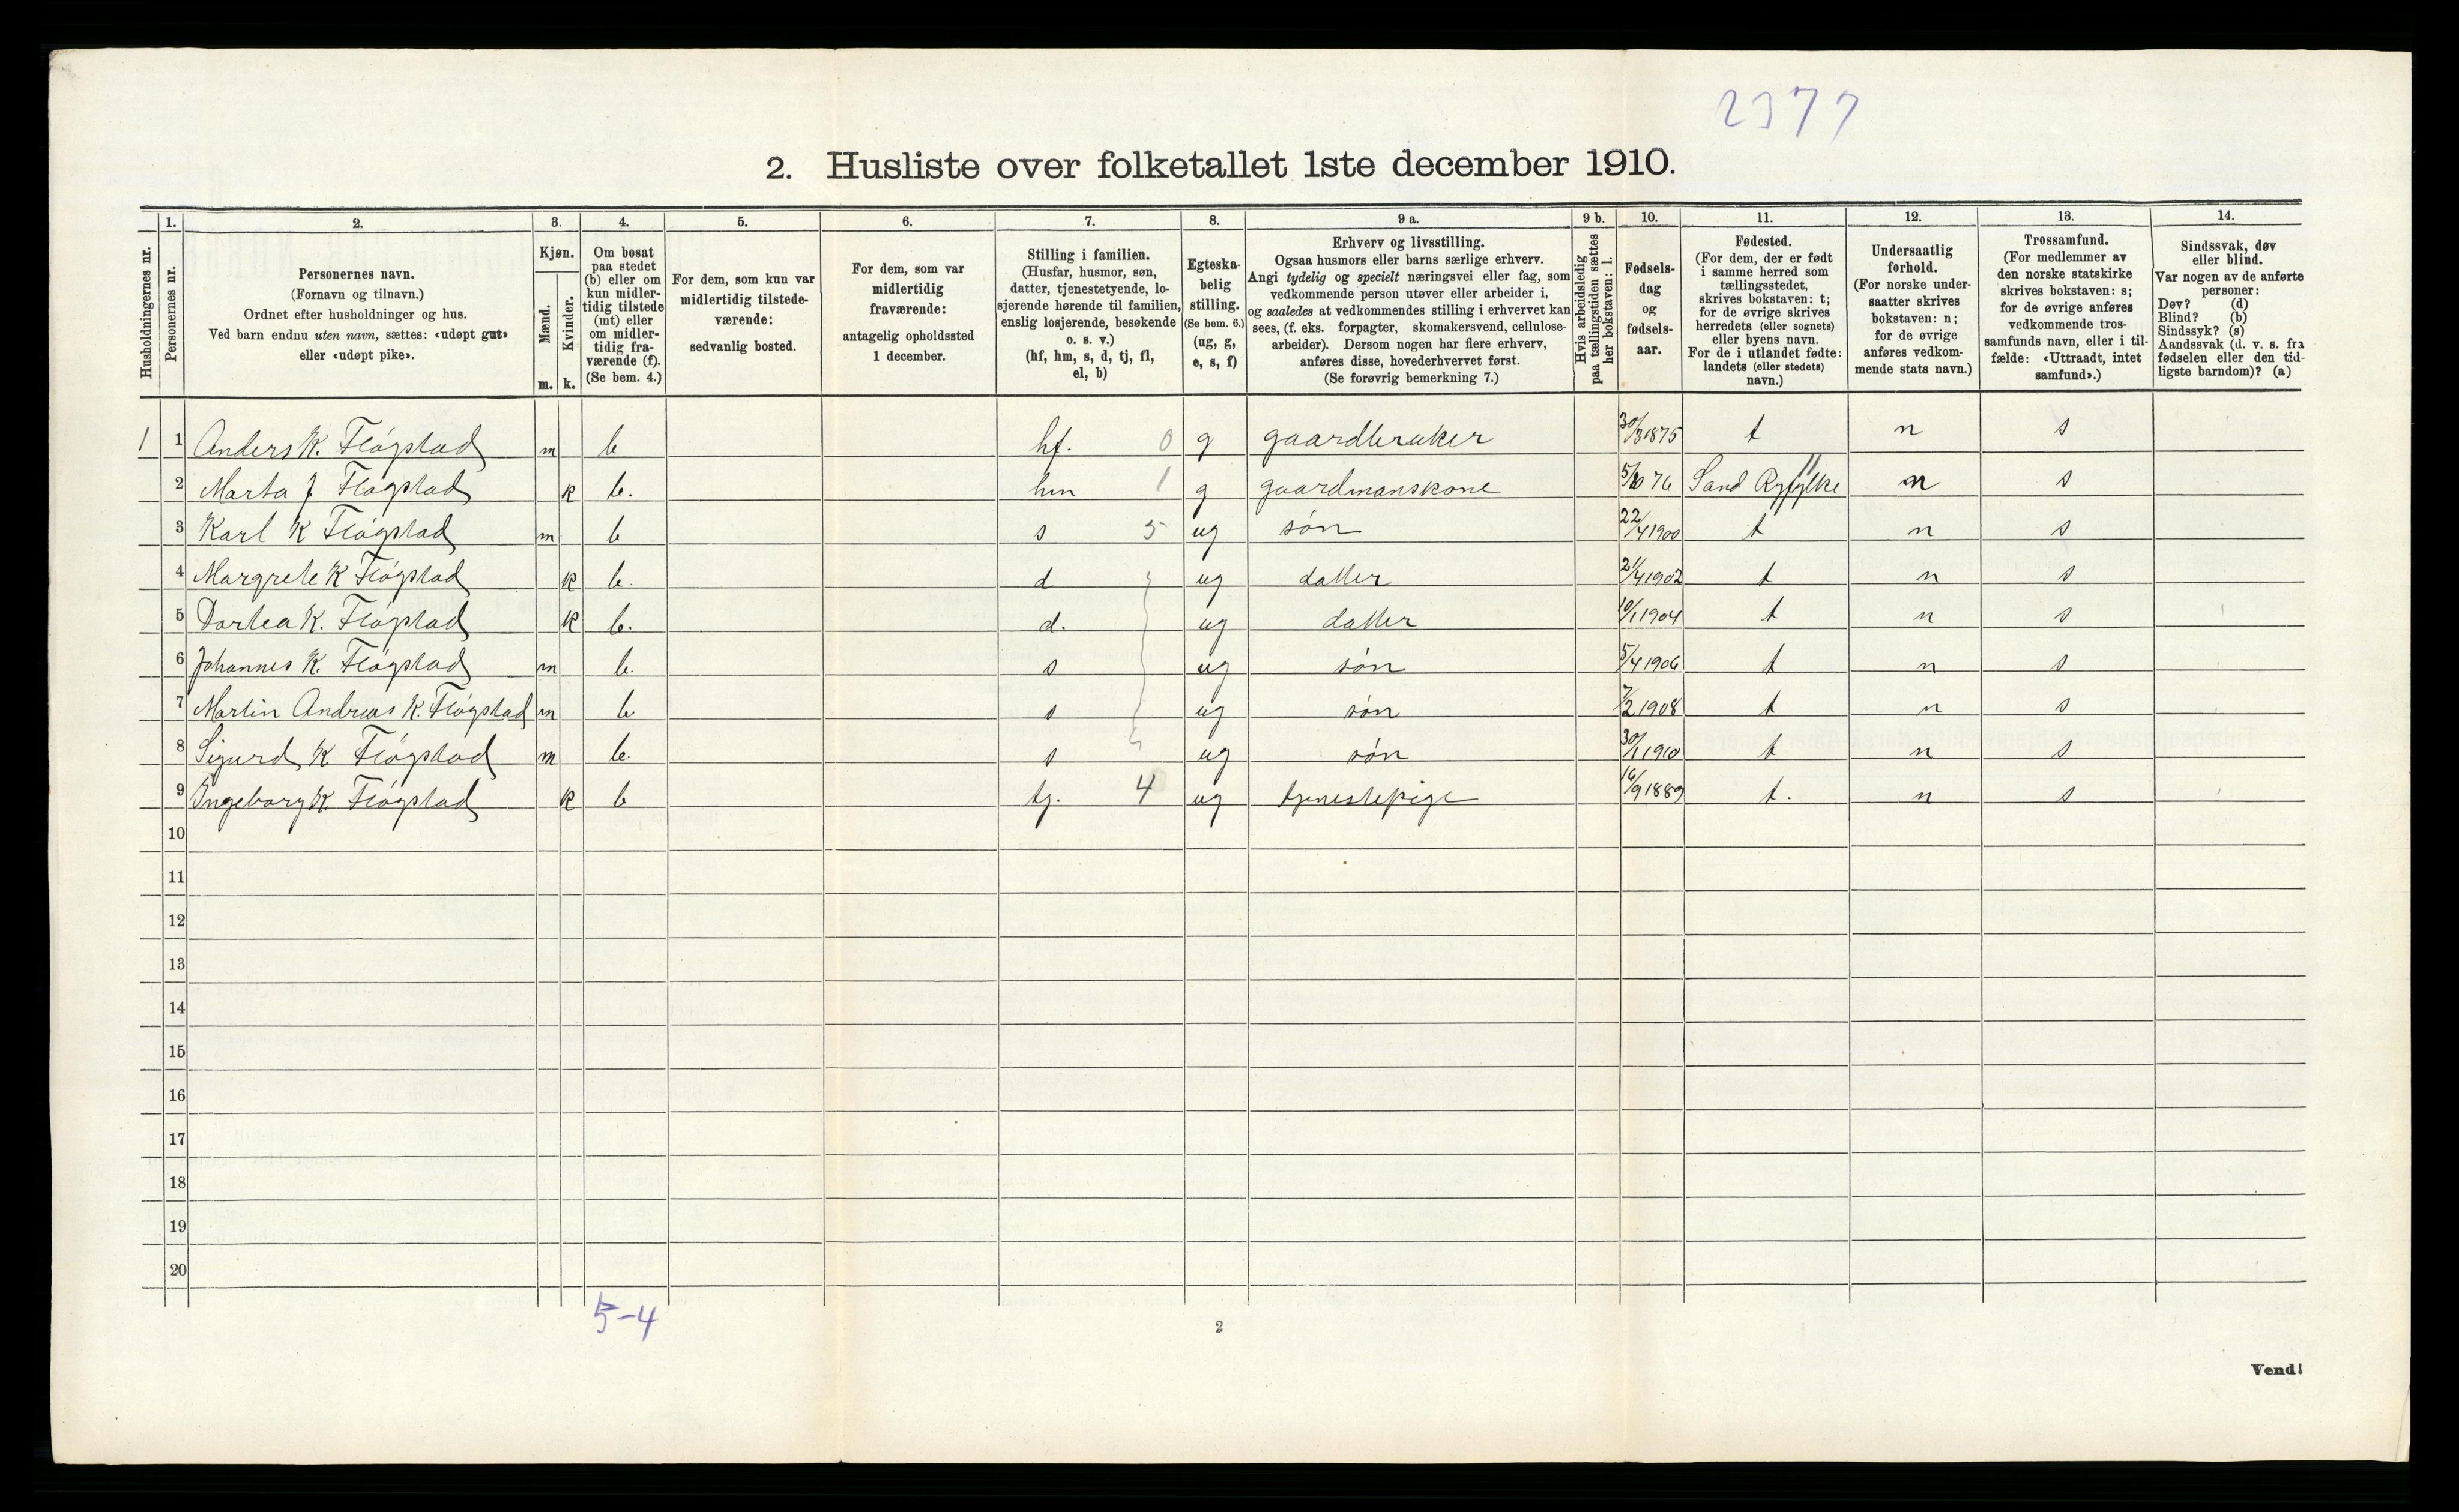 2377
2. Husliste over folketallet 1ste december 1910.
Husholdningernes nr.
1.
Personernes nr.
2.
Personernes navn.
(Fornavn og tilnavn.)
Ordnet efter husholdninger og hus.
Ved barn endnu uten navn, sættes: «udøpt gut»
eller «udøpt pike».
3.
Kjøn.
Mænd.
m.
Kvinder.
k.
4.
Om bosat
paa stedet
(b) eller om
kun midler-
tidig tilstede
(mt) eller
om midler-
tidig fra-
værende (f).
(Se bem. 4.)
5.
For dem, som kun var
midlertidig tilstede-
værende:
sedvanlig bosted.
6.
For dem, som var
midlertidig
fraværende:
antagelig opholdssted
1 december.
7.
Stilling i familien.
(Husfar, husmor, søn,
datter, tjenestetyende, lo-
sjerende hørende til familien,
enslig losjerende, besøkende
o. s. v.)
(hf, hm, s, d, tj, fl,
el, b)
8.
Egteska-
belig
stilling.
(Se bem. 6.)
(ug, g,
e, s, f)
9 a.
Erhverv og livsstilling.
Ogsaa husmors eller barns særlige erhverv.
Angi tydelig og specielt næringsvei eller fag, som
vedkommende person utøver eller arbeider i,
og saaledes at vedkommendes stilling i erhvervet kan
sees, (f. eks. forpagter, skomakersvend, cellulose-
arbeider). Dersom nogen har flere erhverv,
anføres disse, hovederhvervet først.
(Se forøvrig bemerkning 7.)
9 b.
Hvis arbeidsledig
paa tællingstiden sættes
her bokstaven: l.
10.
Fødsels-
dag
og
fødsels-
aar.
11.
Fødested.
(For dem, der er født
i samme herred som
tællingsstedet,
skrives bokstaven: t;
for de øvrige skrives
herredets (eller sognets)
eller byens navn.
For de i utlandet fødte:
landets (eller stedets)
navn.)
12.
Undersaatlig
forhold.
(For norske under-
saatter skrives
bokstaven: n;
for de øvrige
anføres vedkom-
mende stats navn.)
13.
Trossamfund.
(For medlemmer av
den norske statskirke
skrives bokstaven: s;
for de øvrige anføres
vedkommende tros-
samfunds navn, eller i til-
fælde: «Uttraadt, intet
samfund».)
14.
Sindssvak, døv
eller blind.
Var nogen av de anførte
personer:
Døv? (d)
Blind? (b)
Sindssyk? (s)
Aandssvak (d. v. s. fra
fødselen eller den tid-
ligste barndom)? (a)
1 1 Anders K. Fløgstad m b hf. 0 g gaardbruker 30/3 1875 t n s
2 Marta J Fløgstad k b. hm 1 g gaardmanskone 76 Sand Ryfylke n s
3 Karl K Fløgstad m b s 5 ug søn 22/4 1900 t n s
4 Margrete K Fløgstad k b. d ug datter 21/4 1902 t n s
5 Dortea K. Fløgstad k b. d. ug datter 10/1 1904 t n s
6 Johannes K. Fløgstad m b. s ug søn 5/4 1906 t n s
7 Martin Andreas K. Fløgstad m b s ug søn 7/2 1908 t n s
8 Sigurd K Fløgstad m b. s ug søn 30/1 1910 t n s
9 Ingeborg K. Fløgstad k b tj. 4 ug tjenestepige 16/9 1889 t. n s
10
11
12
13
14
15
16
17
18
19
20
5-4
2
Vend!